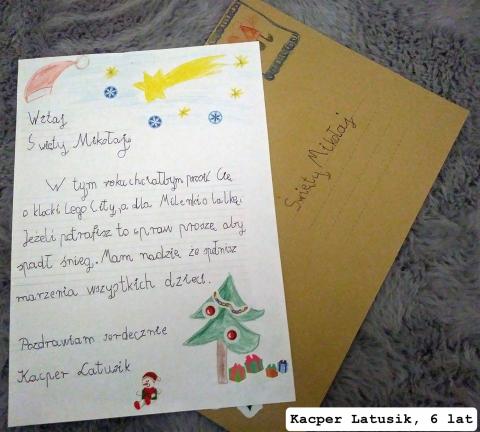 Witaj
Święty Mikołaju
W tym roku chciałbym prosić Cię
o klocki Lego City, a dla Milenki o lalkę.
Jeżeli potrafisz to spraw proszę aby
spadł śnieg. Mam nadzię że spełnisz
marzenia wszyptkich dzieci.
Pozdrawiam serdecznie
Kacper Latusik
Święty Mikołaj
Kacper Latusik, 6 lat